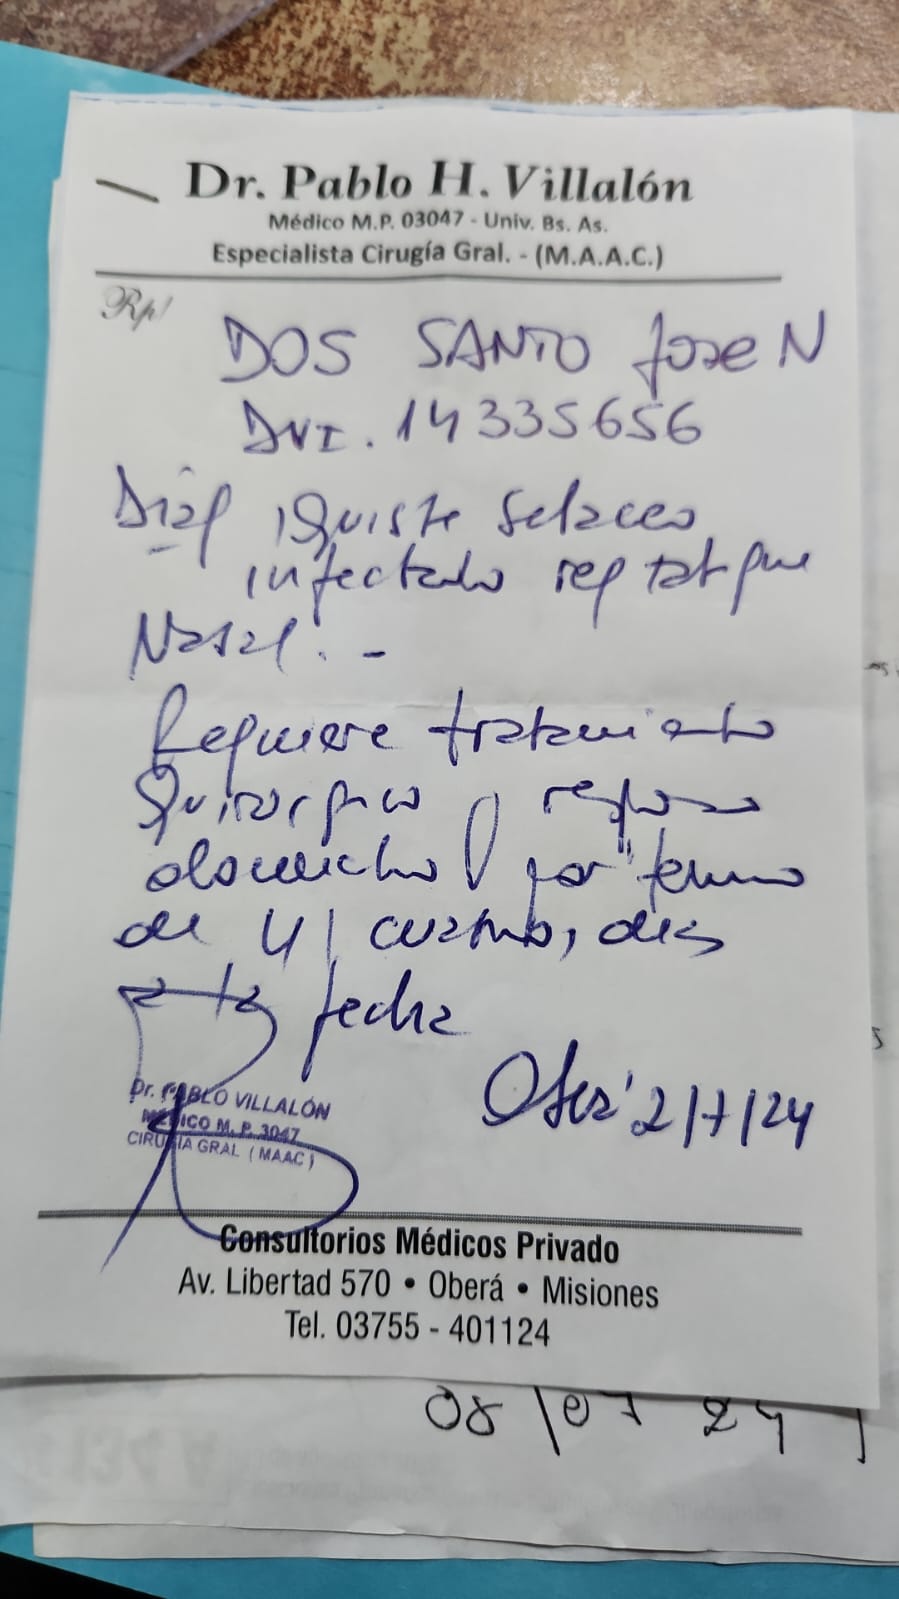 Dr. Pablo H. Villalón
Médico M.P. 03047 - Univ. Bs. As.
Especialista Cirugía Gral. - (M.A.A.C.)
Rp/
DOS SANTO Jose N
DNI. 14335656
Diag Quiste Sebaceo
infectado reg tabique
Nasal. -
Requiere tratamiento
Quirurgico y reposo
domicilio por termino
de 4/ cuatro, dias
fecha
Obera 2/7/24
Dr. PABLO VILLALÓN
MÉDICO M. P. 3047
CIRUGÍA GRAL (MAAC)
Consultorios Médicos Privado
Av. Libertad 570 • Oberá • Misiones
Tel. 03755 - 401124
08/07 24